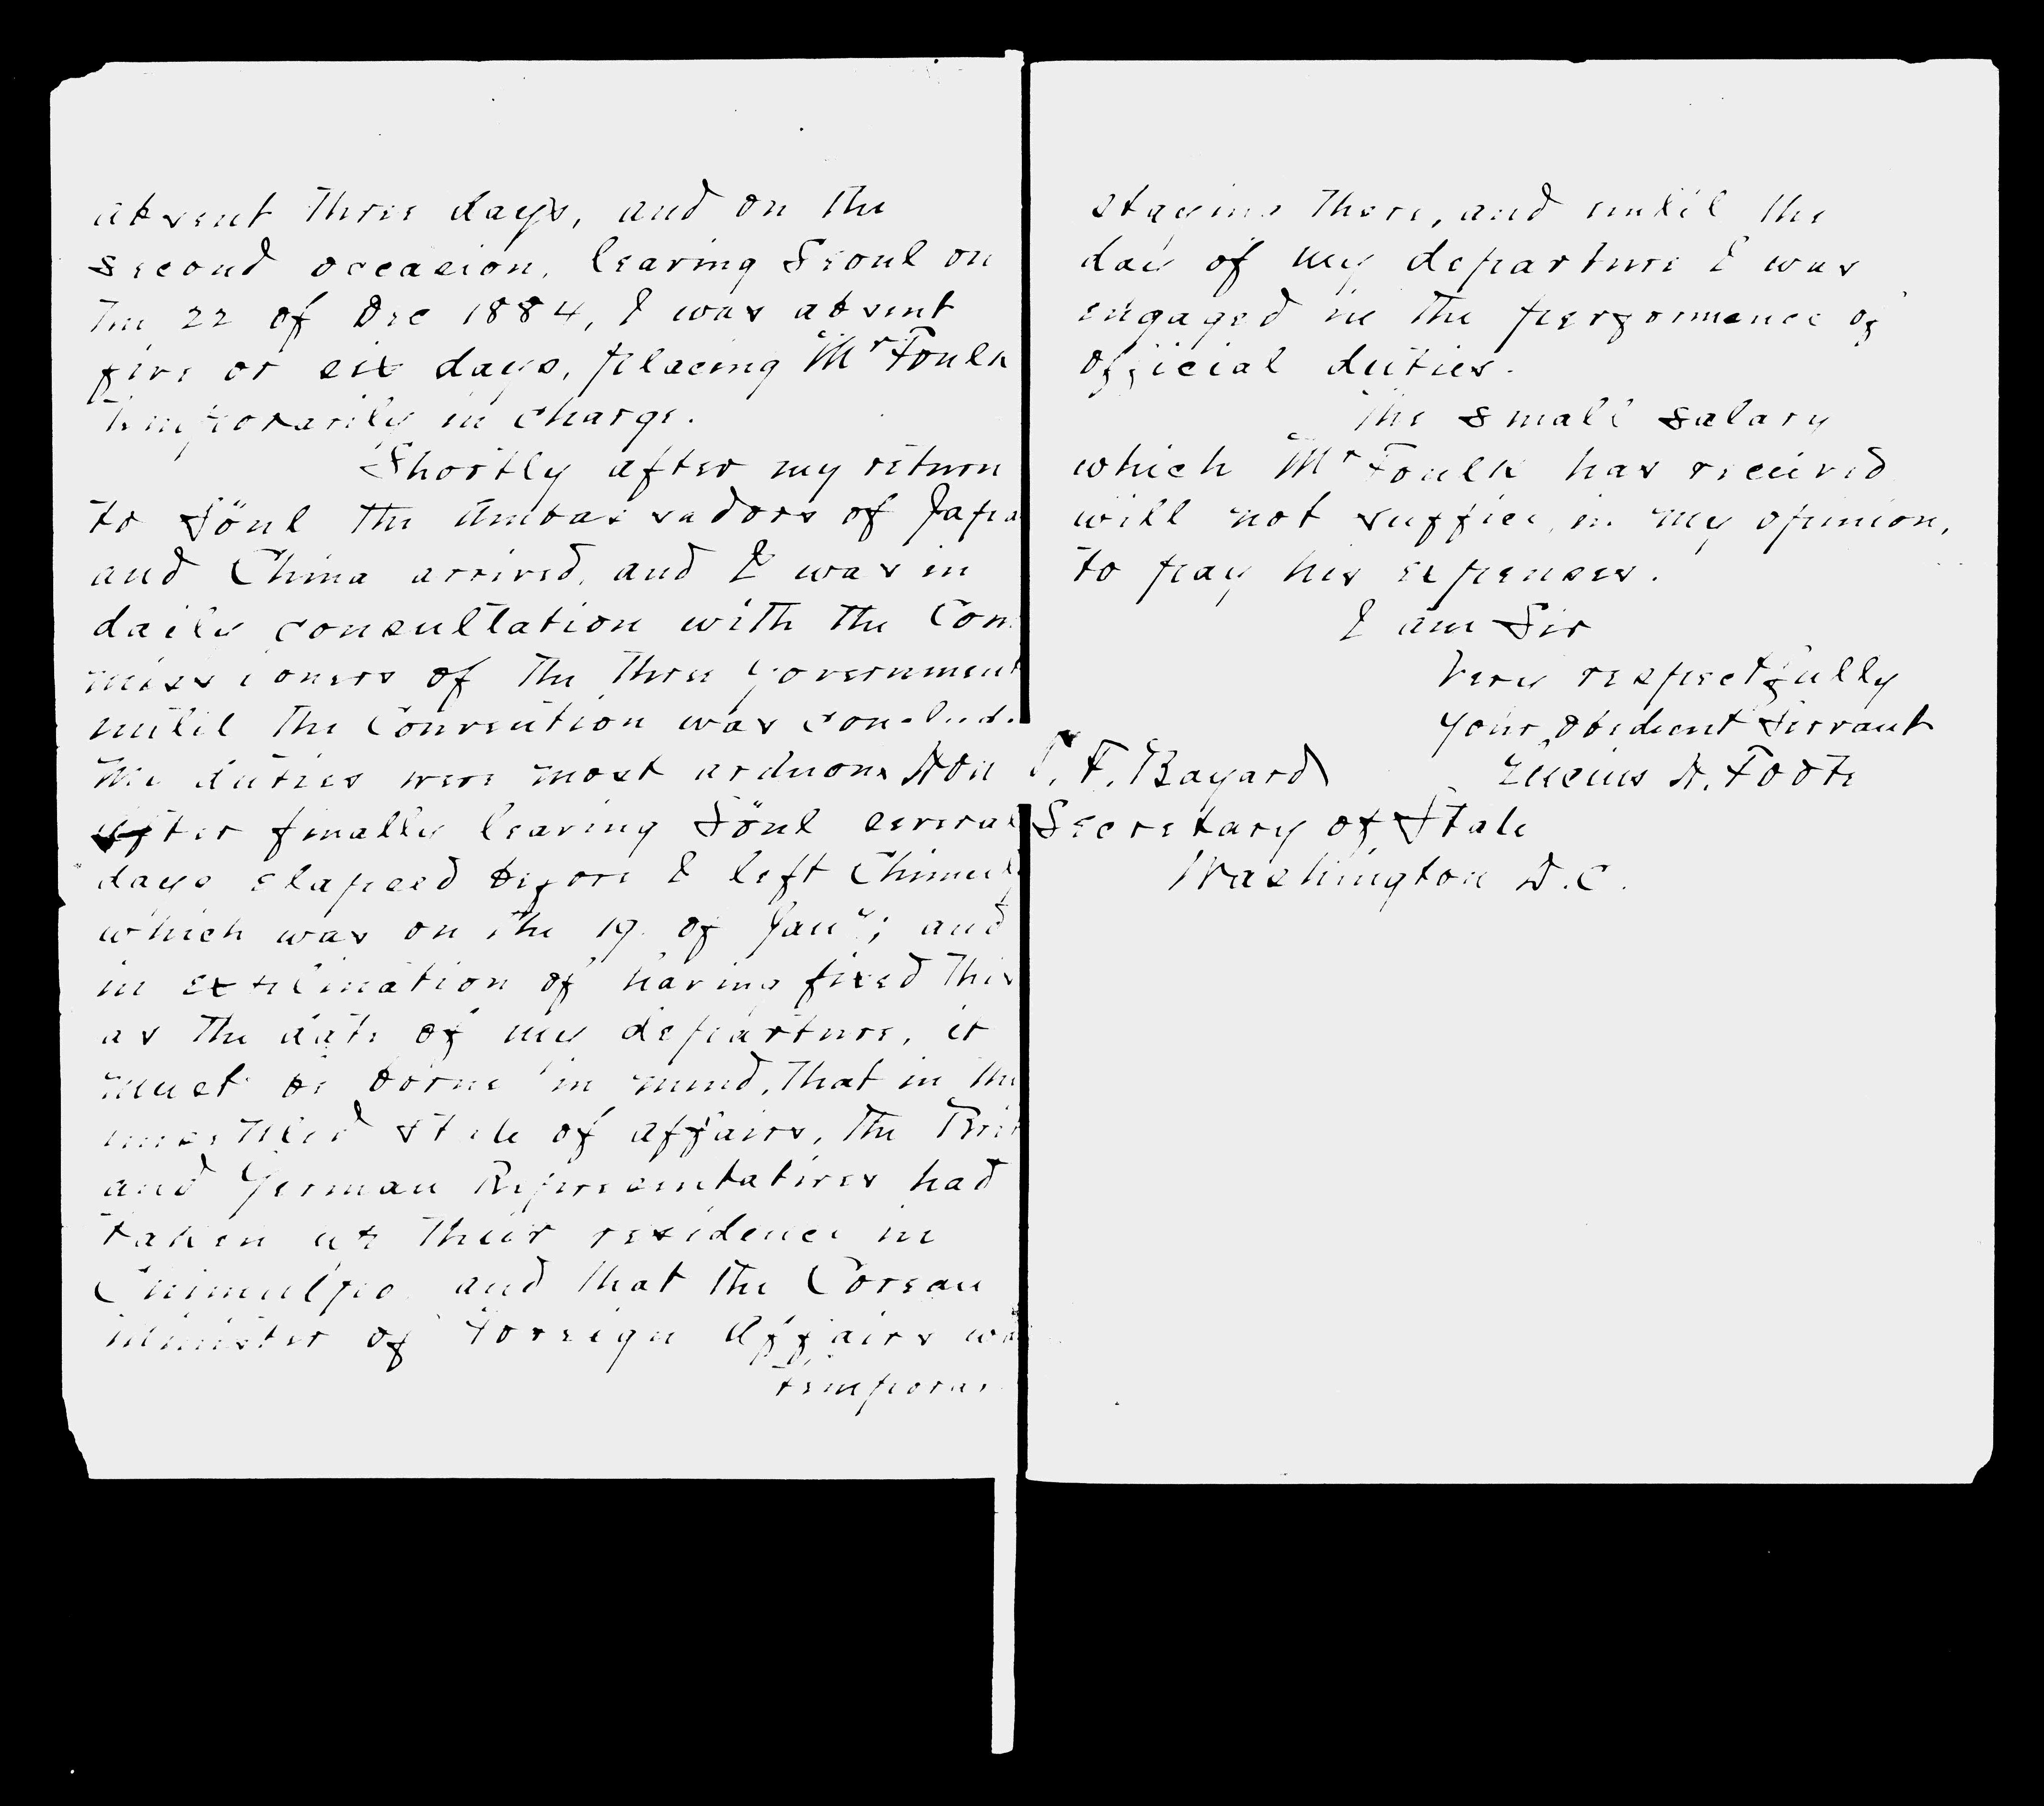 absent three days, and on the
second occasion, leaving Seoul on
the 22 of Dec 1884, I was absent
five or six days, placing Mr Foulk
temporarily in charge.
Shortly after my return
to Söul the Ambassadors of Japa
and China arrived, and I was in
daily consultation with the Com
missioners of the three Government
until the Convention was conclude
The duties were most arduous
after finally leaving Söul several
days elapsed before I left Chimul
which was on the 19 of Jany; and
in explination of having fixed this
as the date of my departure, it
must be borne in mind, that in the
unsettled state of affairs, the Brit
and German Representatives had
taken up their residence in
Chimulpo and that the Corean
Minister of Foreign Affairs wa
temporar
staying there, and until the
day of my departure I was
engaged in the performance of
official duties.
The small salary
which Mr Foulk has received
will not suffice, in my opinion,
to pay his expenses.
I am Sir
Very respectfully
your obedient servant
Lucius H. Foote
Hon T. F. Bayard
Secretary of State
Washington D.C.